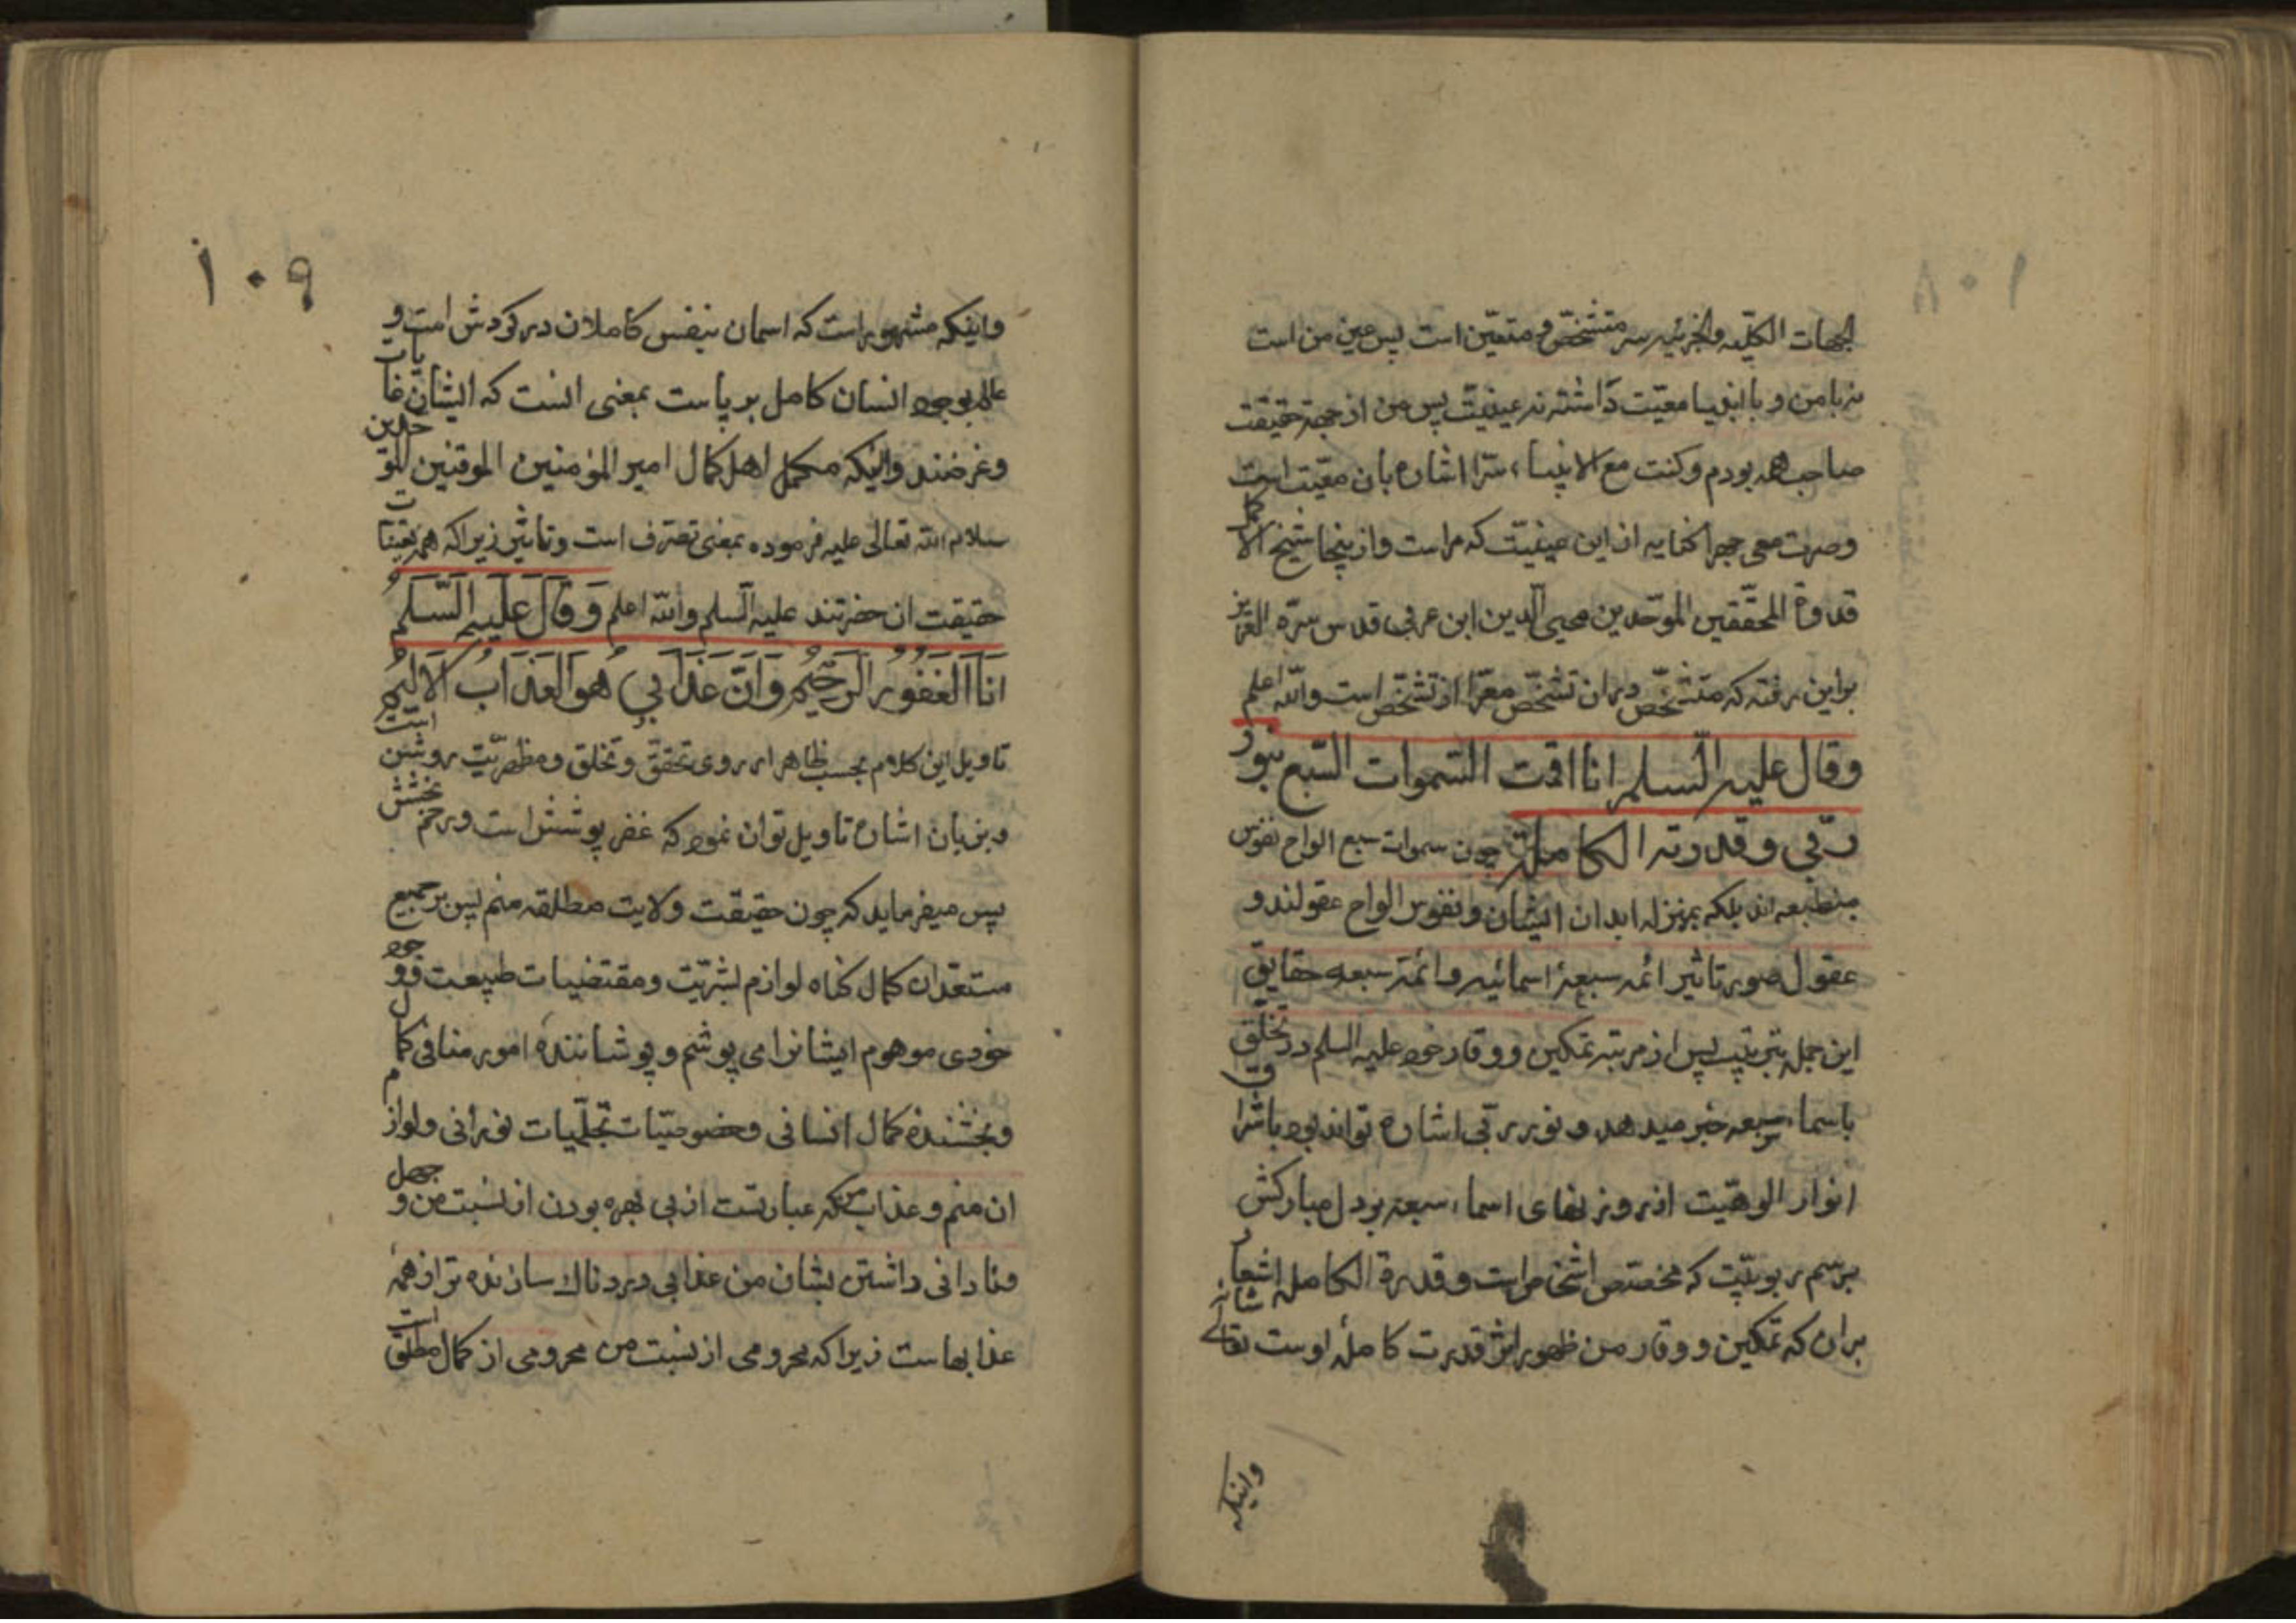 الجهات الکلیه والجزئیه سر متشخص و متعین است پس عین من است
نه با من و با انبیا معیت داشته نه عینیت پس من از جهة حقیقت
صاحب همه بودم و کنت مع الانبیاء سرّا اشاره بان معیت است
وصرت معی جهرا کنایه از این عینیت که مراست و از ینجا شیخ الاکمل
قدوة المحققین الموحّدین محیی الدین ابن عربی قدس سرّه العزیز
براین رفته که متشخّص دران تشخّص معرّا از تشخّص است والله اعلم
وقال علیه السلم انا اقمت السّموات السّبع بنور
ربّی و قدرته الکاملة چون سموات سبع الواح نفوس
منطبعه اند بلکه بمنزله ابدان ایشان و نفوس الواح عقولند و
عقول صور تاثیر ائمه سبعهٔ اسمائیه و ائمّه سبعه حقایق
این جمل بترتیب پس از مرتبه تمکین و وقار خود علیه السلم در تخلّق
باسماء سبعه خبر میدهد و نور ربّی اشاره تواند بود باشراق
انوار الوهیّت از روزنهای اسماء سبعه بر دل مبارکش
برسم ربوبیّت که مختص اشخاص است و قدرة الکامله اشعار
بران که تمکین و وقار من ظهور اثر قدرت کاملهٔ اوست تعالی شانه
وانیکه
۱۰۹
واینکه مشهور است که اسمان بنفس کاملان در کردش است و
عالم بوجود انسان کامل بر پاست بمعنی انست که ایشان غایات
وغرضند وانیکه مکمل اهل کمال امیر المؤمنین الموقنین للموحدین
سلام الله تعالی علیه فرموده بمعنی تصرّف است و تاثیر زیرا که همه تعینات
حقیقت ان حضرتند علیه السلم والله اعلم وَقَالَ عَلَیهِ السَّلَمُ
اَنَا الغَفُورُ الرَحیمُ وَاَنَّ عَذَابِی هُوَ العَذَابُ الاَلیمُ
تاویل این کلام بحسب ظاهر از روی تحقق و تخلق و مظهریّت روشن است
و بزبان اشاره تاویل توان نمود که غفر پوشش است و رحم بخشش
پس میفرماید که چون حقیقت ولایت مطلقه منم پس بر جمیع
مستعدان کمال کناه لوازم بشریّت و مقتضیات طبیعت و وجود
خودی موهوم ایشانرا می پوشم و پوشانندهٔ امور منافی کمال
و بخشنده کمال انسانی و خصوصیّات تجلّیات نورانی و لوازم
ان منم و عذاب من که عبارتست از بی بهره بودن از نسبت من و جهل
و نادانی داشتن بشان من عذابی دردناک سازنده تر از همهٔ
عذابهاست زیرا که محرومی از نسبت من محرومی از کمال مطلق است